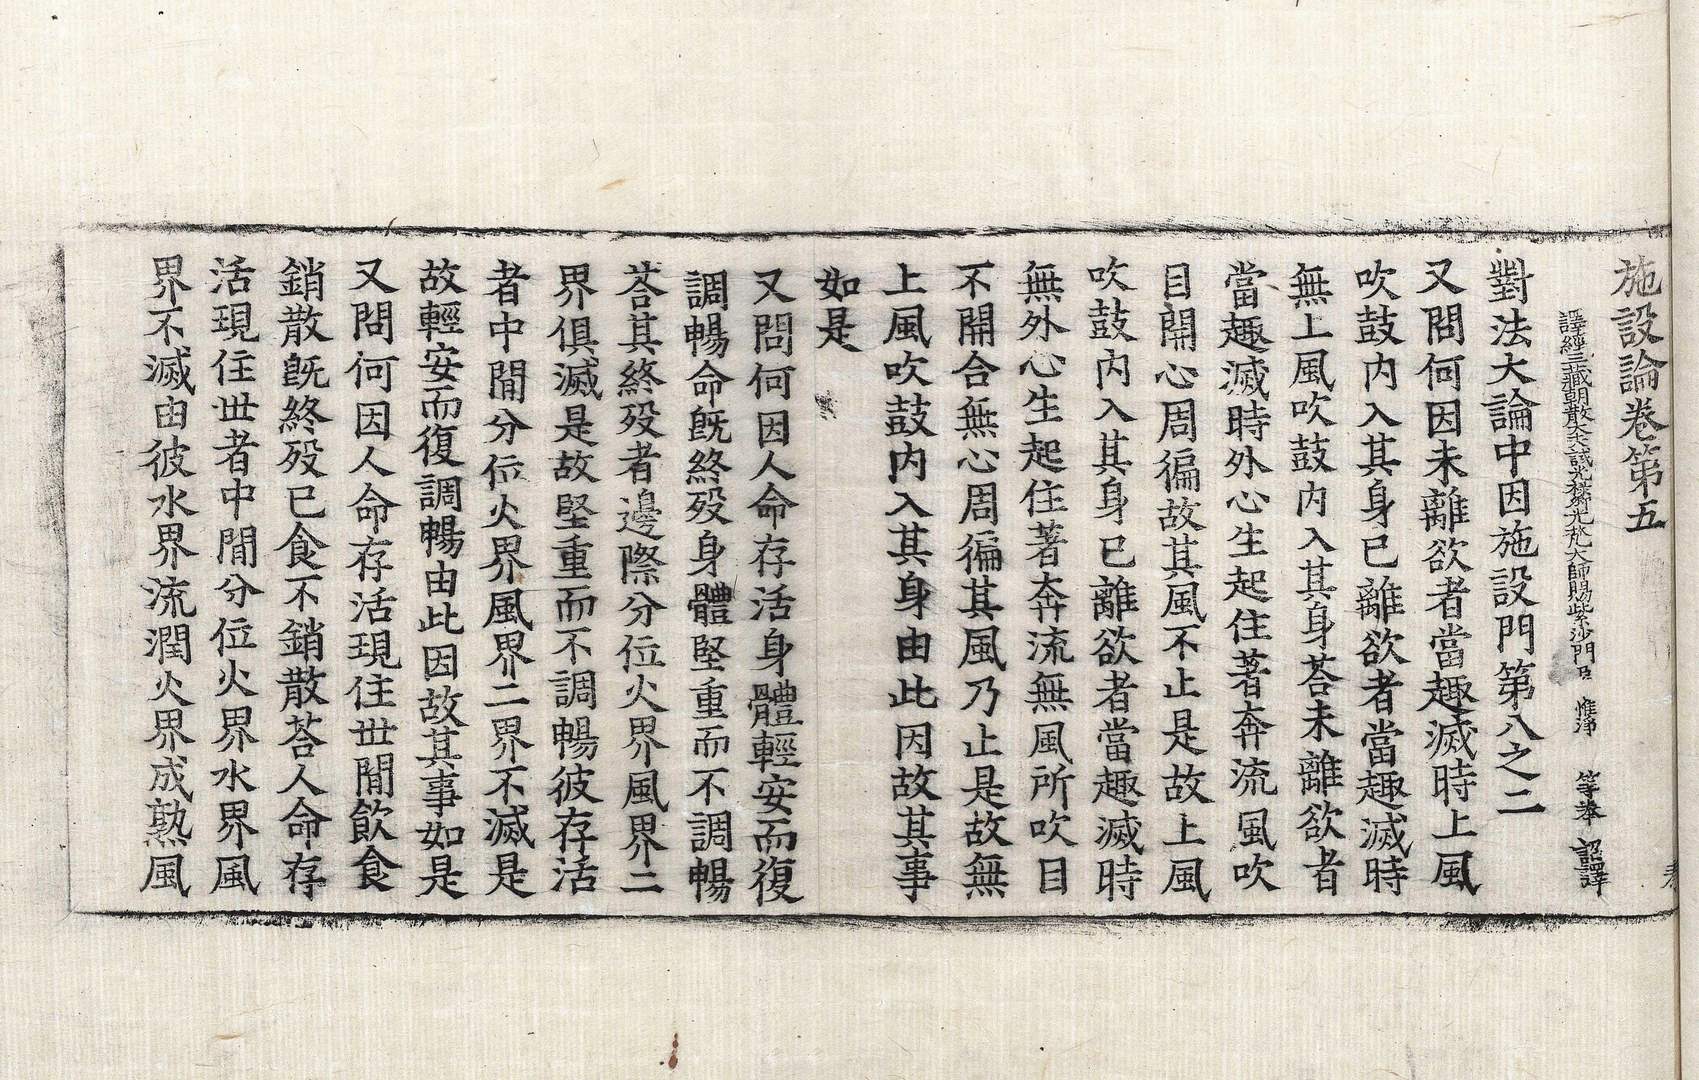 施設論卷第五
譯經三藏朝散大夫試光祿卿光梵大師賜紫沙門臣 惟淨 等奉 詔譯
對法大論中因施設門第八之二
又問何因未離欲者當趣滅時上風
吹鼓內入其身已離欲者當趣滅時
無上風吹鼓內入其身荅未離欲者
當趣滅時外心生起住著奔流風吹
目開心周徧故其風不止是故上風
吹鼓內入其身已離欲者當趣滅時
無外心生起住著奔流無風所吹目
不開合無心周徧其風乃止是故無
上風吹鼓內入其身由此因故其事
如是
又問何因人命存活身體輕安而復
調暢命旣終歿身體堅重而不調暢
荅其終歿者邊際分位火界風界二
界俱滅是故堅重而不調暢彼存活
者中間分位火界風界二界不滅是
故輕安而復調暢由此因故其事如是
又問何因人命存活現住世間飲食
銷散旣終歿已食不銷散荅人命存
活現住世者中間分位火界水界風
界不滅由彼水界流潤火界成熟風